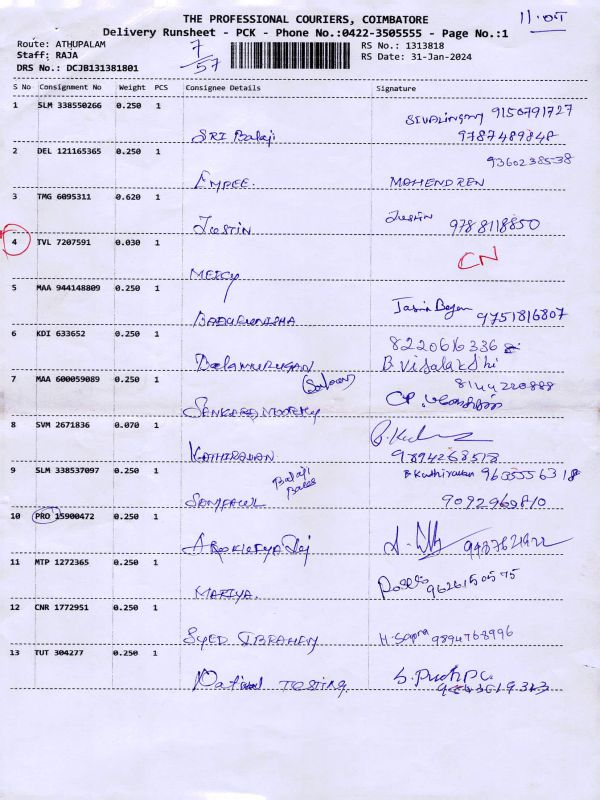 11.05
THE PROFESSIONAL COURIERS, COIMBATORE
Delivery Runsheet - PCK - Phone No.:0422-3505555 - Page No.:1
Route: ATHUPALAM
Staff: RAJA
DRS No.: DCJB131381801
7/57
RS No.: 1313818
RS Date: 31-Jan-2024
S No Consignment No Weight PCS Consignee Details Signature
1 SLM 338550266 0.250 1
SRI Balaji 9150791727
9787489848
2 DEL 121165365 0.250 1 9360238538
EMPEE. MAHENDREN
3 TMG 6095311 0.620 1
JUSTIN Justin 9788118850
4 TVL 7207591 0.030 1 CN
MERCY
5 MAA 944148809 0.250 1
9751816807
6 KDI 633652 0.250 1 8220616336
BALAMURUGAN B. Visalakshi
7 MAA 600059089 0.250 1 8144220888
(Saloon)
8 SVM 2671836 0.070 1
KATHIRAVAN 9894268518
9 SLM 338537097 0.250 1 B Kathiravan
Balaji
9092969810
10 PRO 15900472 0.250 1
11 MTP 1272365 0.250 1
MARIYA. 9626150575
12 CNR 1772951 0.250 1
SYED IBRAHIM 9894768996
13 TUT 304277 0.250 1
TESTING